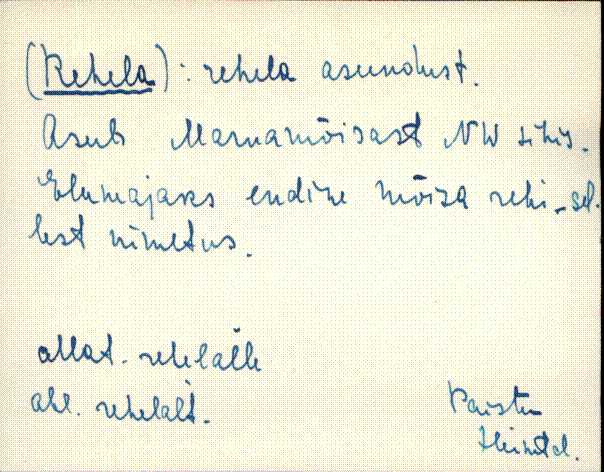 (Rehela): rehela asundust.
Asub Marnamõisast NW sihis.
Elumajaks endine mõisa rehi - sel.
lest nimetus.
allat. rehelalle
abl. rehelalt.
Paistu
Heimtal.